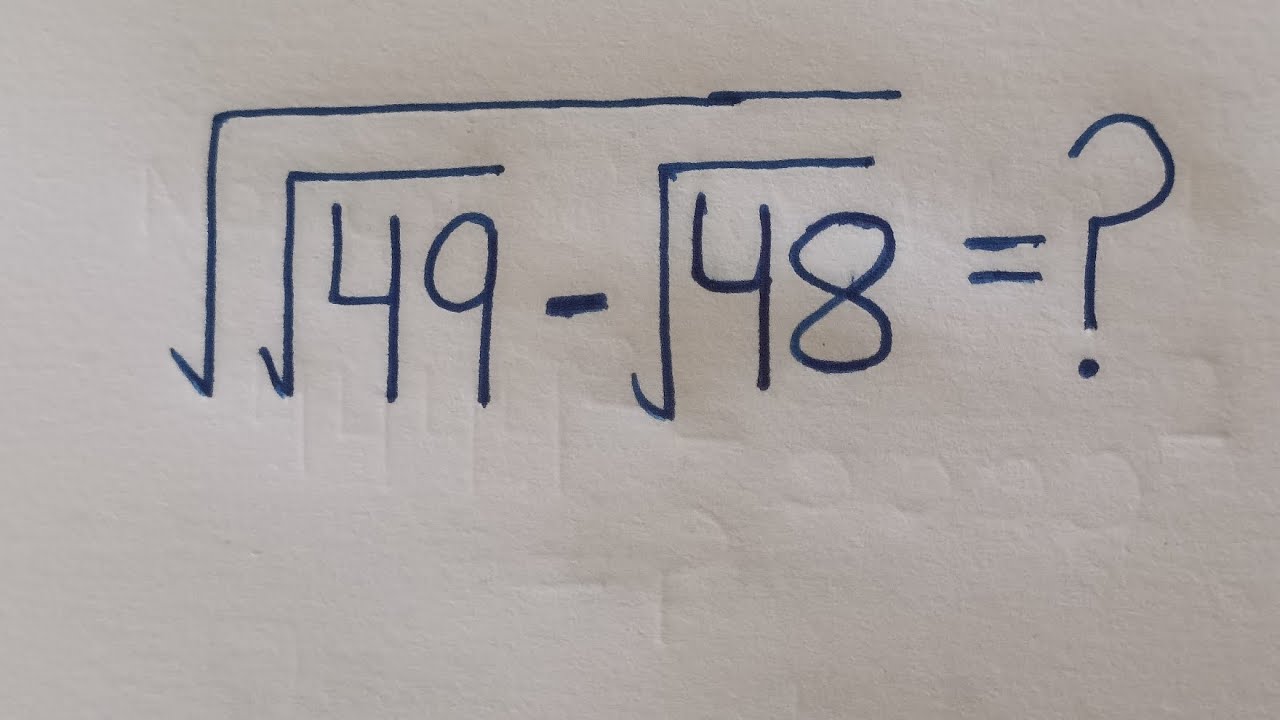 √(√49 - √48) = ?